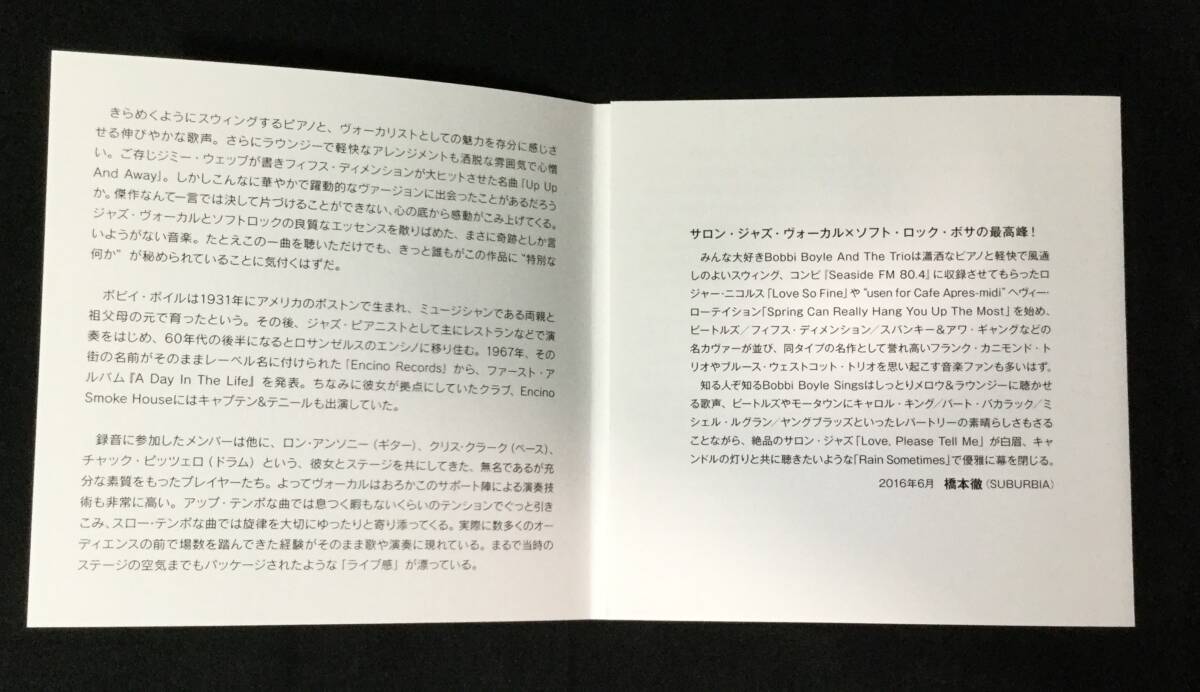 きらめくようにスウィングするピアノと、ヴォーカリストとしての魅力を存分に感じさ
せる伸びやかな歌声。さらにラウンジーで軽快なアレンジメントも洒脱な雰囲気で心憎
い。ご存じジミー・ウェッブが書きフィフス・ディメンションが大ヒットさせた名曲「Up Up
And Away」。しかしこんなに華やかで躍動的なヴァージョンに出会ったことがあるだろう
か。傑作なんて一言では決して片づけることができない、心の底から感動がこみ上げてくる。
ジャズ・ヴォーカルとソフトロックの良質なエッセンスを散りばめた、まさに奇跡としか言
いようがない音楽。たとえこの一曲を聴いただけでも、きっと誰もがこの作品に“特別な
何か”が秘められていることに気付くはずだ。
ボビイ・ボイルは1931年にアメリカのボストンで生まれ、ミュージシャンである両親と
祖父母の元で育ったという。その後、ジャズ・ピアニストとして主にレストランなどで演
奏をはじめ、60年代の後半になるとロサンゼルスのエンシノに移り住む。1967年、その
街の名前がそのままレーベル名に付けられた「Encino Records」から、ファースト・ア
ルバム『A Day In The Life』を発表。ちなみに彼女が拠点にしていたクラブ、Encino
Smoke Houseにはキャプテン&テニールも出演していた。
録音に参加したメンバーは他に、ロン・アンソニー（ギター）、クリス・クラーク（ベース）、
チャック・ピッツェロ（ドラム）という、彼女とステージを共にしてきた、無名であるが充
分な素質をもったプレイヤーたち。よってヴォーカルはおろかこのサポート陣による演奏技
術も非常に高い。アップ・テンポな曲では息つく暇もないくらいのテンションでぐっと引き
こみ、スロー・テンポな曲では旋律を大切にゆったりと寄り添ってくる。実際に数多くのオー
ディエンスの前で場数を踏んできた経験がそのまま歌や演奏に現れている。まるで当時の
ステージの空気までもパッケージされたような「ライブ感」が漂っている。
サロン・ジャズ・ヴォーカル×ソフト・ロック・ボサの最高峰！
みんな大好きBobbi Boyle And The Trioは瀟洒なピアノと軽快で風通
しのよいスウィング、コンピ『Seaside FM 80.4』に収録させてもらったロ
ジャー・ニコルス「Love So Fine」や“usen for Cafe Apres-midi”ヘヴィー・
ローテイション「Spring Can Really Hang You Up The Most」を始め、
ビートルズ／フィフス・ディメンション／スパンキー＆アワ・ギャングなどの
名カヴァーが並び、同タイプの名作として誉れ高いフランク・カニモンド・ト
リオやブルース・ウェストコット・トリオを思い起こす音楽ファンも多いはず。
知る人ぞ知るBobbi Boyle Singsはしっとりメロウ＆ラウンジーに聴かせ
る歌声、ビートルズやモータウンにキャロル・キング／バート・バカラック／ミ
シェル・ルグラン／ヤングブラッズといったレパートリーの素晴らしさもさる
ことながら、絶品のサロン・ジャズ「Love, Please Tell Me」が白眉、キャ
ンドルの灯りと共に聴きたいような「Rain Sometimes」で優雅に幕を閉じる。
2016年6月　橋本徹（SUBURBIA）